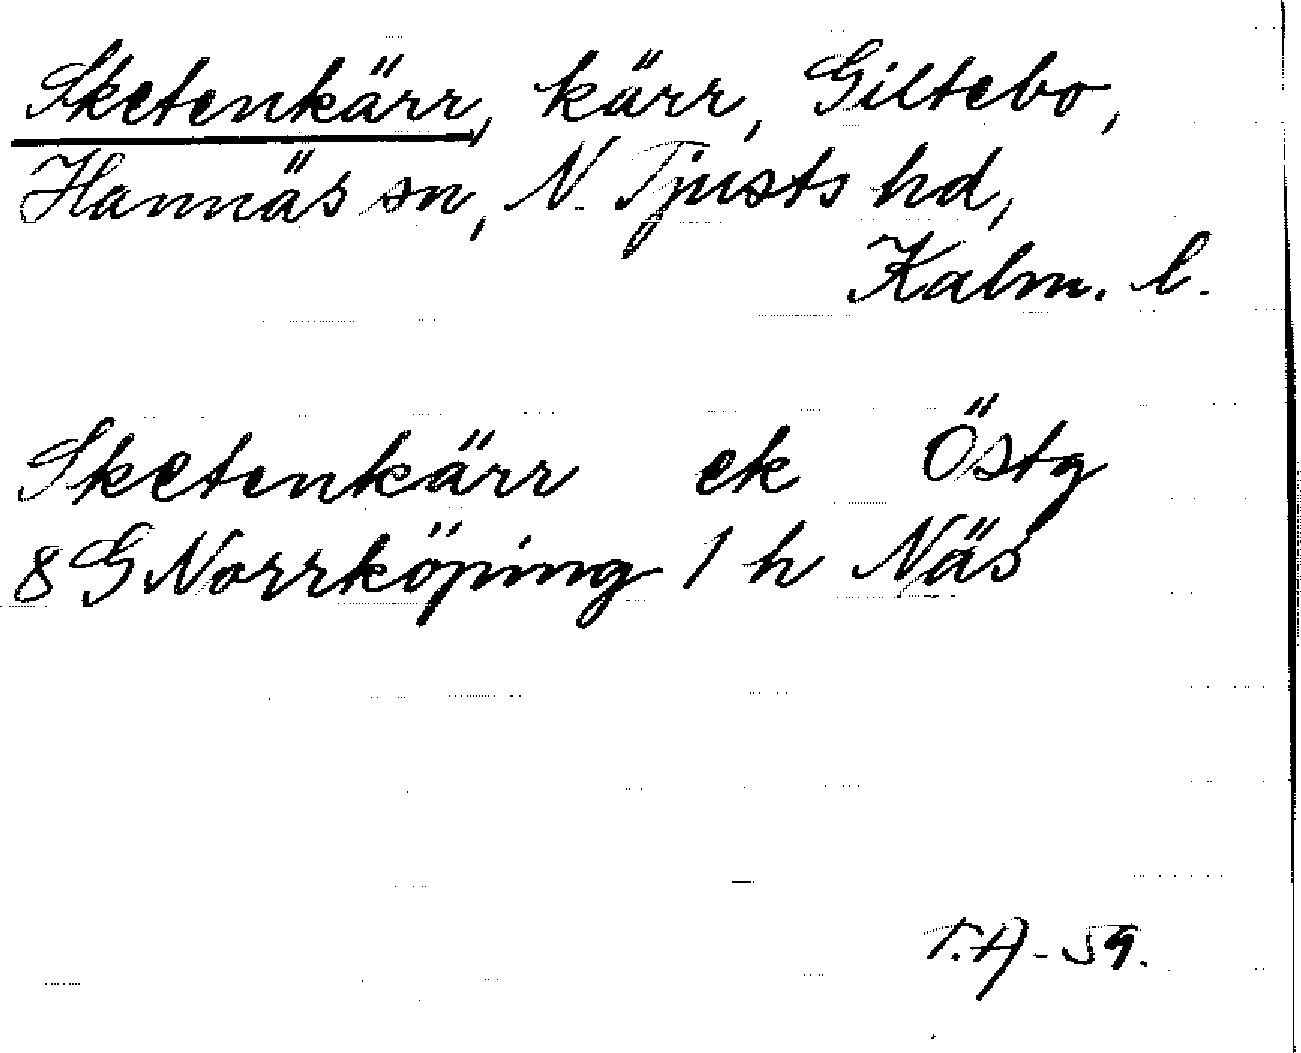 Sketenkärr, kärr, Giltebo,
Hannäs sn, N. Tjusts hd,
Kalm. l.
Sketenkärr ek Östg
8 G Norrköping 1 h Näs
T.A-59.